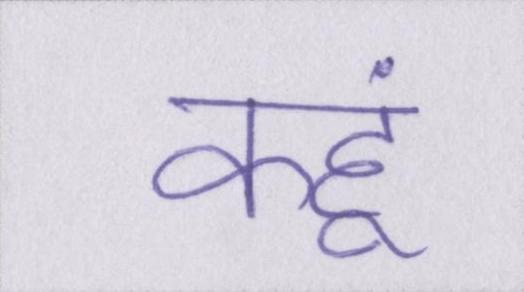 कहूं